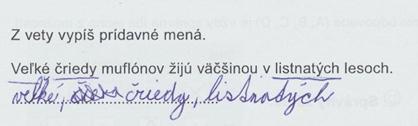 Z vety vypíš prídavné mená.
Veľké čriedy muflónov žijú väčšinou v listnatých lesoch.
veľké, čriedy, listnatých